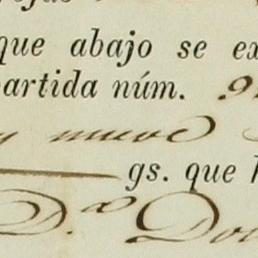 que abajo se ex
partida núm. 9
y nueve
gs. que
D.ª Do